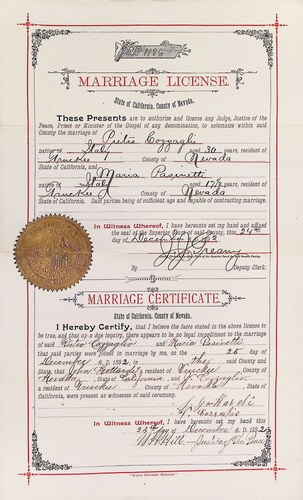 MARRIAGE LICENSE.
State of California, County of Nevada.
These Presents are to authorize and license any Judge, Justice of the
Peace, Priest or Minister of the Gospel of any denomination, to solemnize within said
County the marriage of Pietio Cozzaglio
native of Italy aged 30 years, resident of
Truckee County of Nevada
State of California, and Maria Pasinetti
native of Italy aged 17½ years, resident of
Truckee County of Nevada
State of California. Said parties being of sufficient age and capable of contracting marriage.
In Witness Whereof, I have hereunto set my hand and affixed
the seal of the Superior Court of said County, this 24th
day of
By Deputy Clerk.
MARRIAGE CERTIFICATE.
State of California, County of Nevada.
I Hereby Certify, that I believe the facts stated in the above license to
be true, and that up n due inquiry, there appears to be no legal impediment to the marriage of
said Pietro Cozzaglio and Maria Pasinetti
that said parties were joined in marriage by me, on the 25 day of
December A. D. 189 in the said County and
State, that John a resident of Truckee County of
Nevada, State of California, and
a resident of Truckee County of Nevada State of California,
were present as witnesses of said ceremony.
In Witness Whereof, I have hereunto set my hand this
25th day of December A. D. 189
W. H. Hill